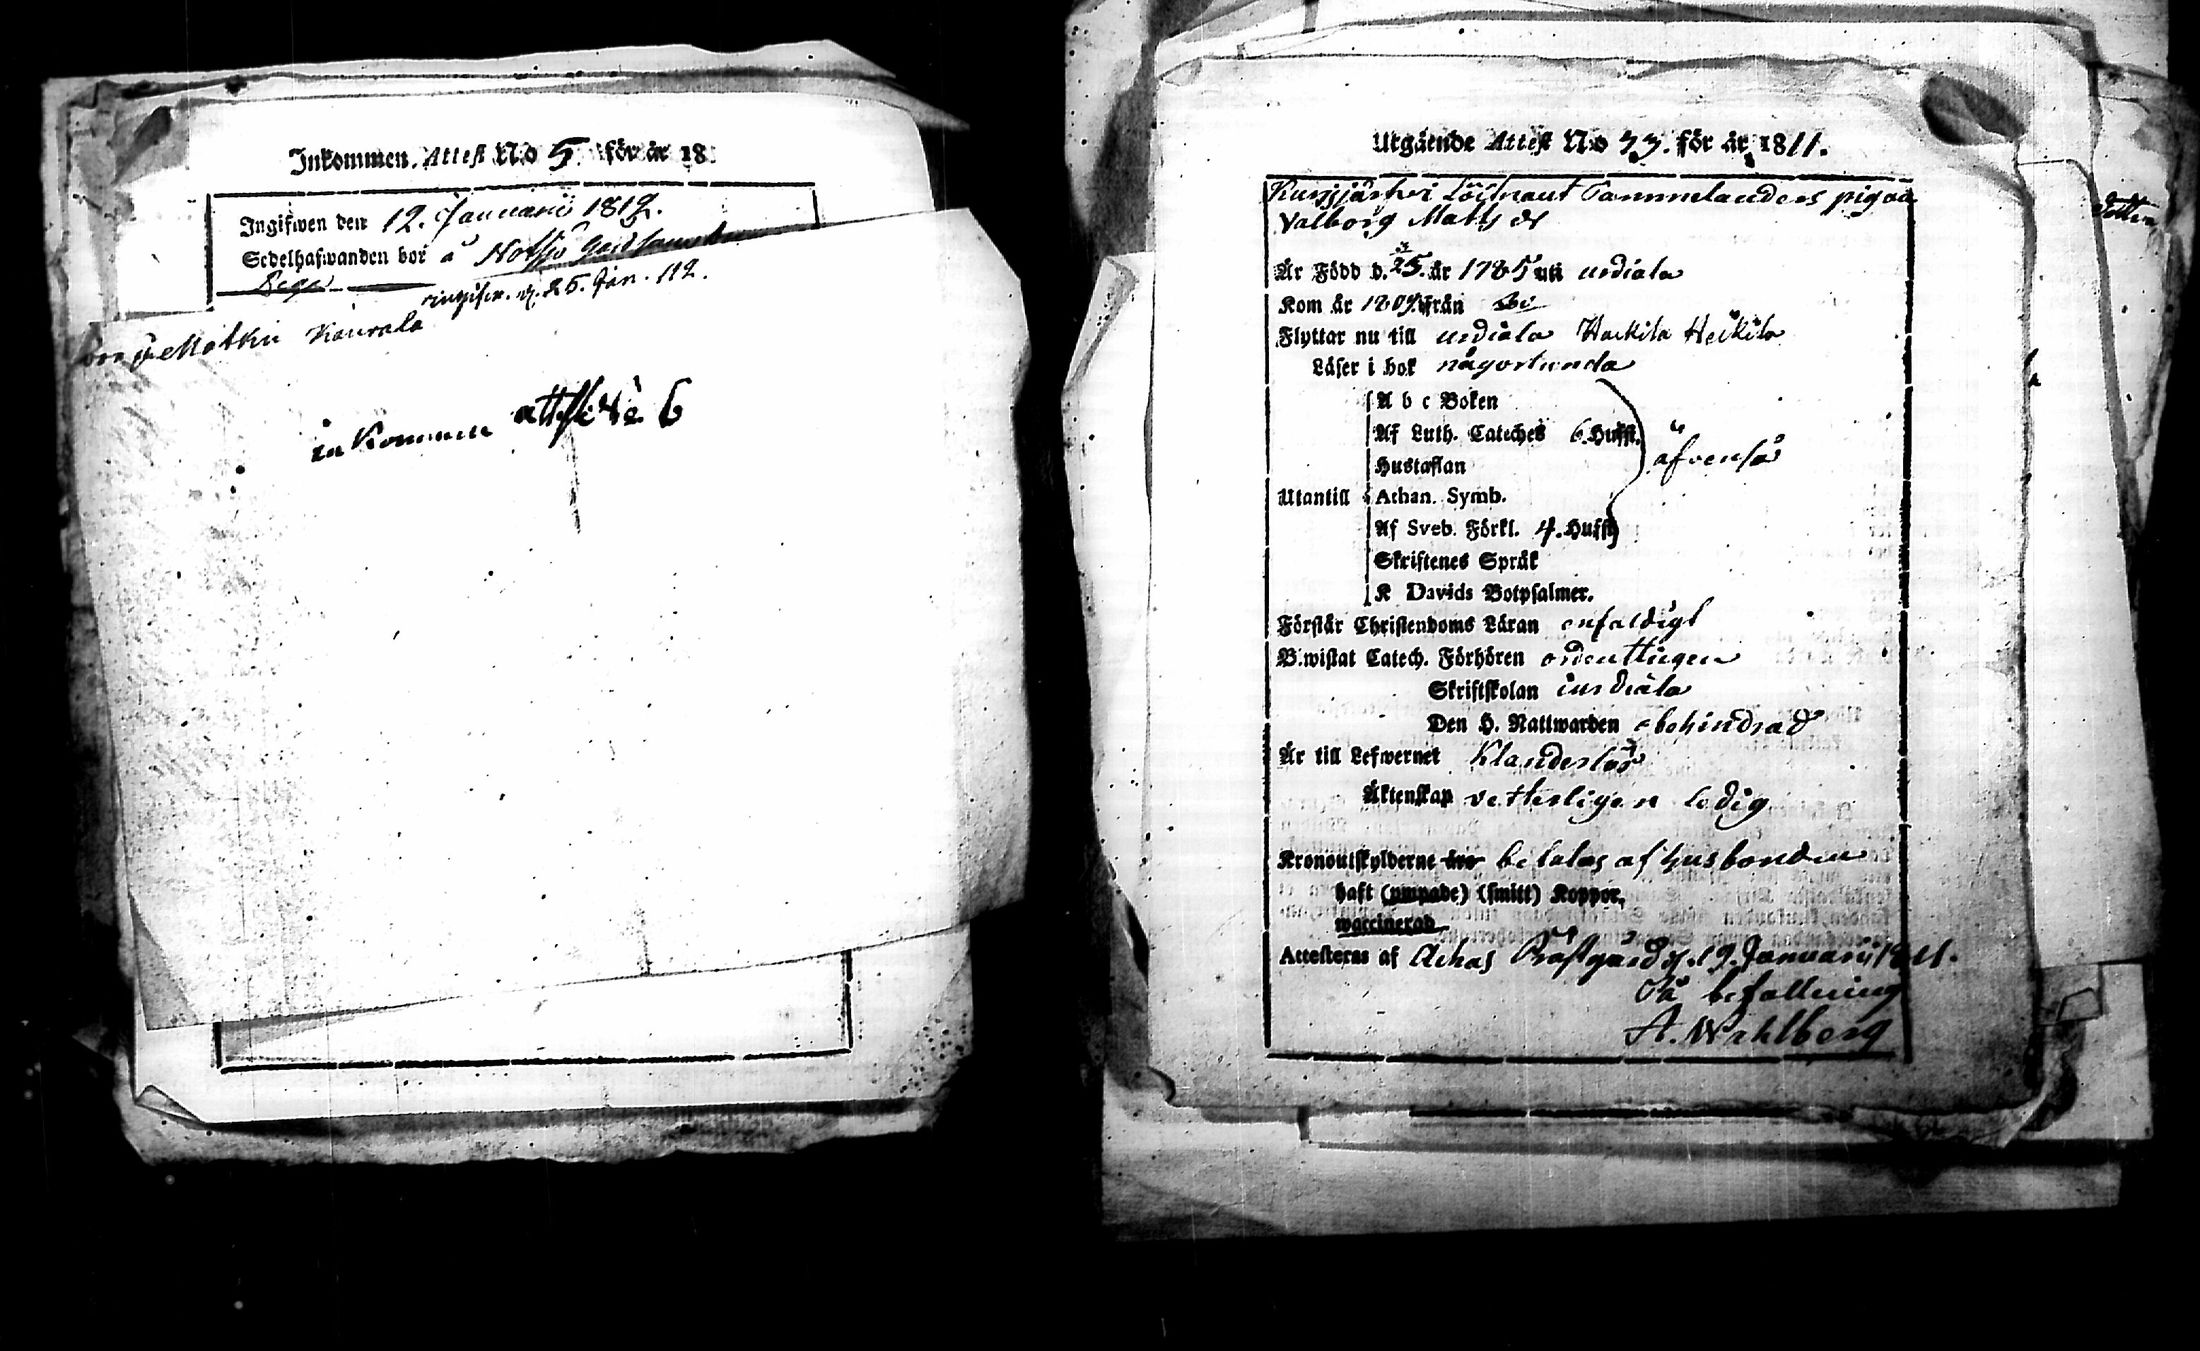 Inkommen Attest No 5. för år 18
Ingifwen den 12. Januarii 1812.
Sedelhafwanden bor å Notsjö
ingifen. d. 25. Jan. 112.
Matku Kaurala
inkommen 6
Utgående Attest No 33. för år 1811.
Kurjjärfvi Löitnant Tammelanders piga
Valborg Matts dr
Är Född d. 25. år 1785 uti urdiala
Kom år 1809. ifrån
Flyttar nu till urdiala Heikila
Läser i bok någorlunda
A b c Boken
Af Luth. Cateches 6. Hufst.
äfvenså
Hustaflan
Utantill Athan. Symb.
Af Sveb. Förkl. 4. Hufst
Skriftenes Språk
K Davids Botpsalmer.
Förstår Christendoms Läran enfaldigt
Biwistat Catech. Förhören ordentligen
Skriftskolan i urdiala
Den H. Nattwarden obehindrad
Är till Lefwernet Klanderlös
Äktenskap vetterligen ledig
Kronoutskylderne äro betalas af husbonden
haft (ympade) (smitt) Koppor,
waccinerad
Attesteras af Achas Prästgård d. 19. Januarii 1811.
På befallning
A. Wahlberg